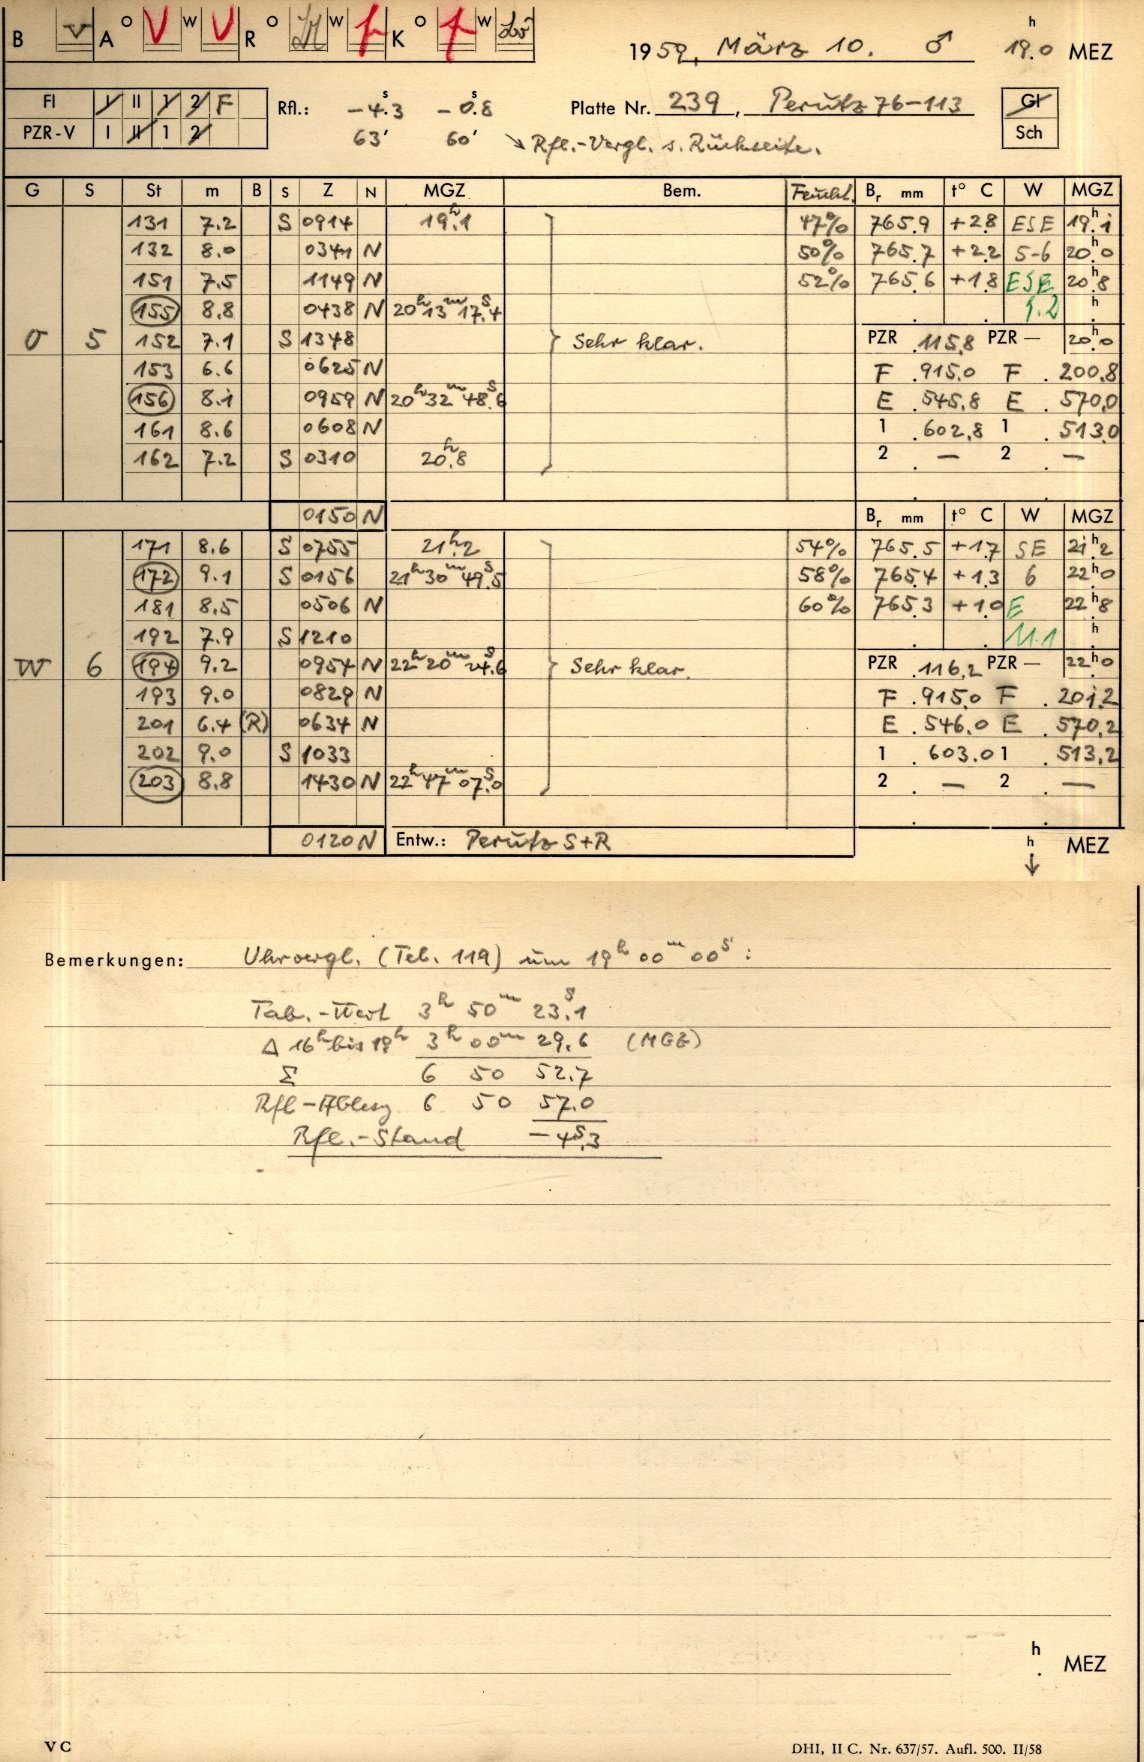 B A o W R o W K o W
1959, März 10. ♂ 19h.0 MEZ
Fl I II 1 2 F Rfl.: −4s.3 −0s.8 Platte Nr. 239, Perutz 76-113 Gl
PZR-V I II 1 2 63' 60' ↘ Rfl.-Vergl. s. Rückseite. Sch
G S St m B s Z N MGZ Bem. Feucht. Br mm t° C W MGZ
131 7.2 S 0914 19h.1 47% 765.9 +2.8 ESE 19h.1
132 8.0 0341 N 50% 765.7 +2.2 5-6 20h.0
151 7.5 1149 N 52% 765.6 +1.8 ESE 20h.8
155 8.8 0438 N 20h13m17s.4 1.2 h
O 5 152 7.1 S 1348 Sehr klar. PZR 115.8 PZR — 20h.0
153 6.6 0625 N F 915.0 F 200.8
156 8.1 0959 N 20h32m48s.6 E 545.8 E 570.0
161 8.6 0608 N 1 602.8 1 513.0
162 7.2 S 0310 20h.8 2 — 2 —
0150 N Br mm t° C W MGZ
171 8.6 S 0755 21h.2 54% 765.5 +1.7 SE 21h.2
172 9.1 S 0156 21h30m49s.5 58% 765.4 +1.3 6 22h.0
181 8.5 0506 N 60% 765.3 +1.0 E 22h.8
192 7.9 S 1210 11.1 h
W 6 194 9.2 0954 N 22h20m24s.6 Sehr klar. PZR 116.2 PZR — 22h.0
193 9.0 0829 N F 915.0 F 201.2
201 6.4 (R) 0634 N E 546.0 E 570.2
202 9.0 S 1033 1 603.0 1 513.2
203 8.8 1430 N 22h47m07s.0 2 — 2 —
0120 N Entw.: Perutz S+R h MEZ
↓
Bemerkungen: Uhrvergl. (Tel. 119) um 19h 00m 00s:
Tab.-Wert 3h 50m 23s.1
Δ 16h bis 19h 3h 00m 29.6 (MGZ)
Σ 6 50 52.7
Rfl-Ablesg 6 50 57.0
Rfl.-Stand −4s.3
h
. MEZ
V C DHI, II C. Nr. 637/57. Aufl. 500. II/58